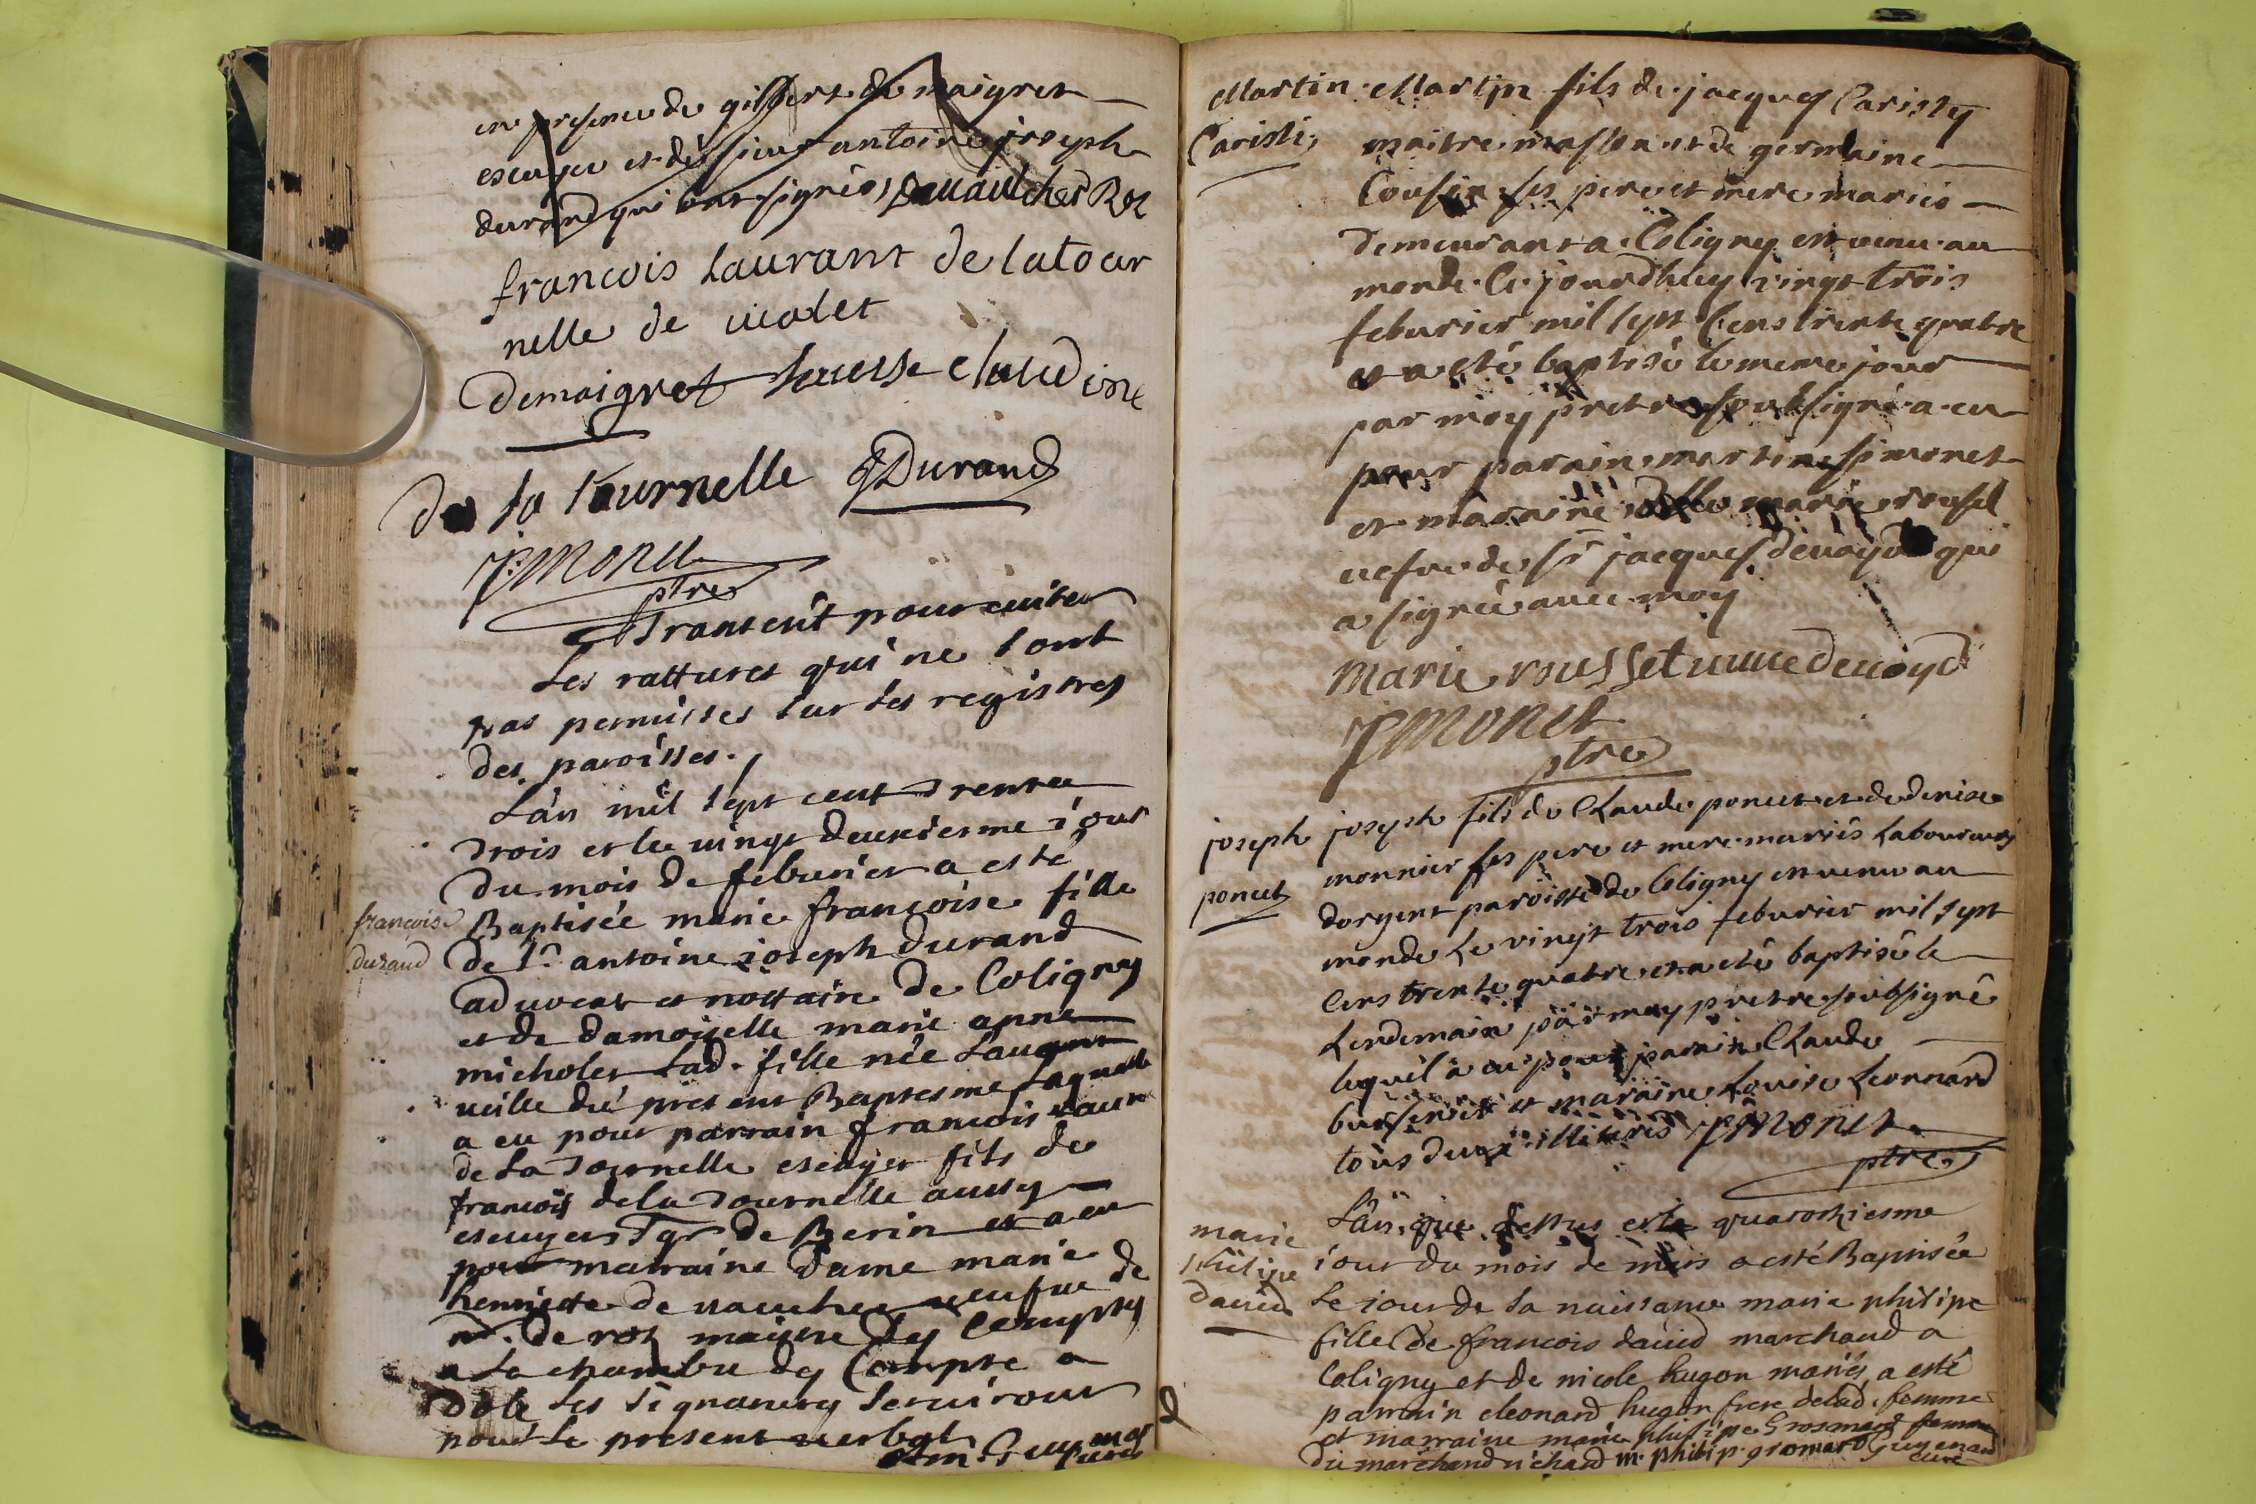 en presence de gilbert de maigret
escuyer et de sieur antoine joseph
durand qui ont signés, Devaulcher Roz
francois Laurant de latour
nelle de violet
Demaigret claudine
De la tournelle JDurand
JPMonet
ptre
pour eviter
Les rattures qui ne sont
pas permisses sur les registres
des paroisses.
L'an mil sept cent trente
trois et le vingt deuxiesme iour
du mois de feburier a esté
francoise
durand
Baptisée marie francoise fille
de Sr antoine ioseph durand
aduocat et nottaire de Coligny
et de damoiselle marie anne
micholet Lad. fille née
ueille du present Baptesme Laquelle
a eu pour parrain francois Laurt
de La tournelle escuyer fils de
francois de la tournelle aussy
escuyer Sgr de Berin et a eu
pour marraine Dame marie
henriette de vaucher ueufue de
mr. de roz maitre des Comptes
a La chambre des Compte a
Dole Les signatures seruiront
pour Le present uerbal
Martin
Caristi
Martin fils de jacques Caristy
maitre masson et de germaine
Cousin ses pere et mere mariés
demeurant a Coligny est venu au
monde ce jourdhuy vingt trois
feburier mil sept Cens trente quatre
et a eté baptisé le meme jour
par moy pretre soubsigné a eu
pour parain martin simonet
et maraine dlle marie rousset
uefue de sr jacques devoyd qui
a signée avec moy
Marie rousset uuue devoyd
JPMonet
ptre
joseph
poncet
joseph fils de Claude poncet et de denise
monnier ses pere et mere mariés Laboureurs
dorgent paroisse de Coligny est venu au
monde Le vingt trois feburier mil sept
Cens trente quatre et a eté baptisé le
Lendemain par moy pretre soubsigné
lequel a eu pour parain Claude
et maraine Louise Leonnard
tous deux illiterés JPMonet
ptre
marie
philipe
david
L'an que dessus et le quatorziesme
iour du mois de mars a esté Baptisée
Le iour de sa naissance marie philipe
fille de francois david marchand a
Coligny et de nicole hugon mariés, a esté
parrain cleonard hugon frere de lad. femme
et marraine marie philipe Grosmard femme
du marchand richard m. philip. gromard Guyenard
curé